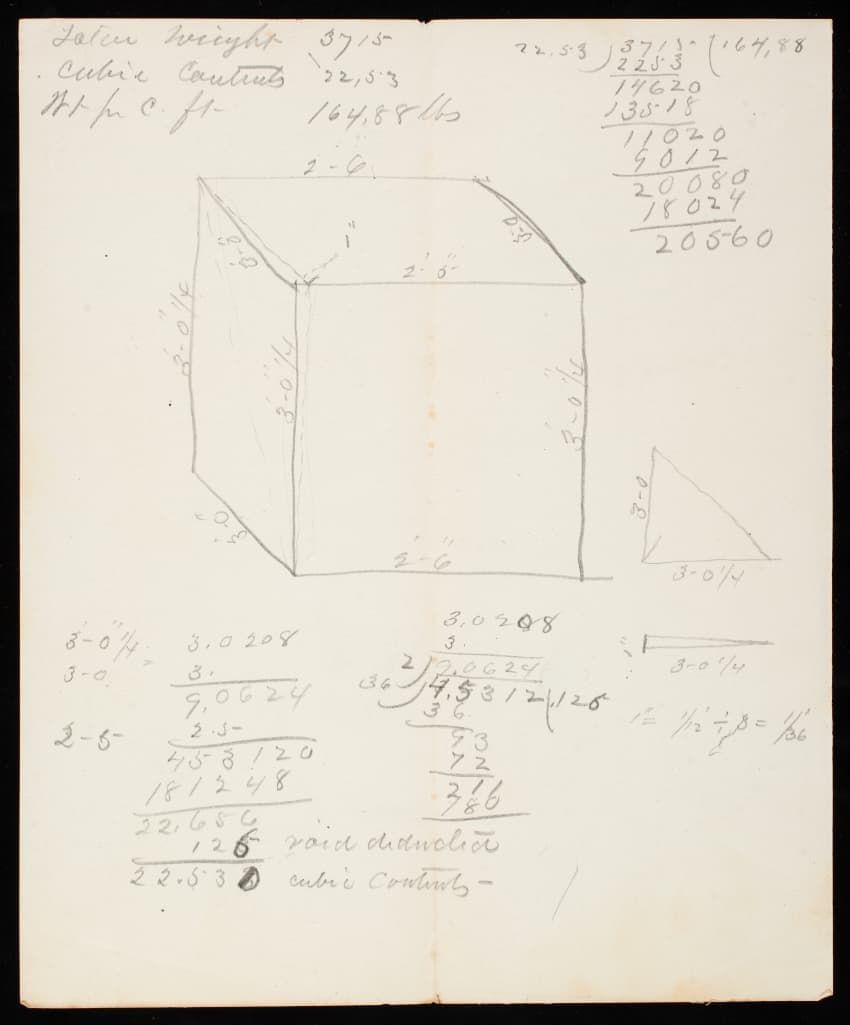 Total Weight 3715
Cubic Contents 22,53
Wt pr C. ft. 164,88 lbs
22.53 ) 3715 ( 164,88
2253
14620
13518
11020
9012
20080
18024
20560
2'-6"
3'-0"
1"
3'-0
2'-5"
3'-0"1/4
3'-0"1/4
3'-0"1/4
3'-0"
2'-6"
3-0
3-0 1/4
1"
3-0 1/4
1" = 1/12 ÷ 3 = 1/36
3'-0"1/4 = 3.0208
3-0 3.
9,0624
2-5 2.5
453120
181248
22.656
126 void deducted
22.530 cubic Contents -
3.0208
3.
2 ) 9.0624
36 ) 4.5312 ( .126
36
93
72
211